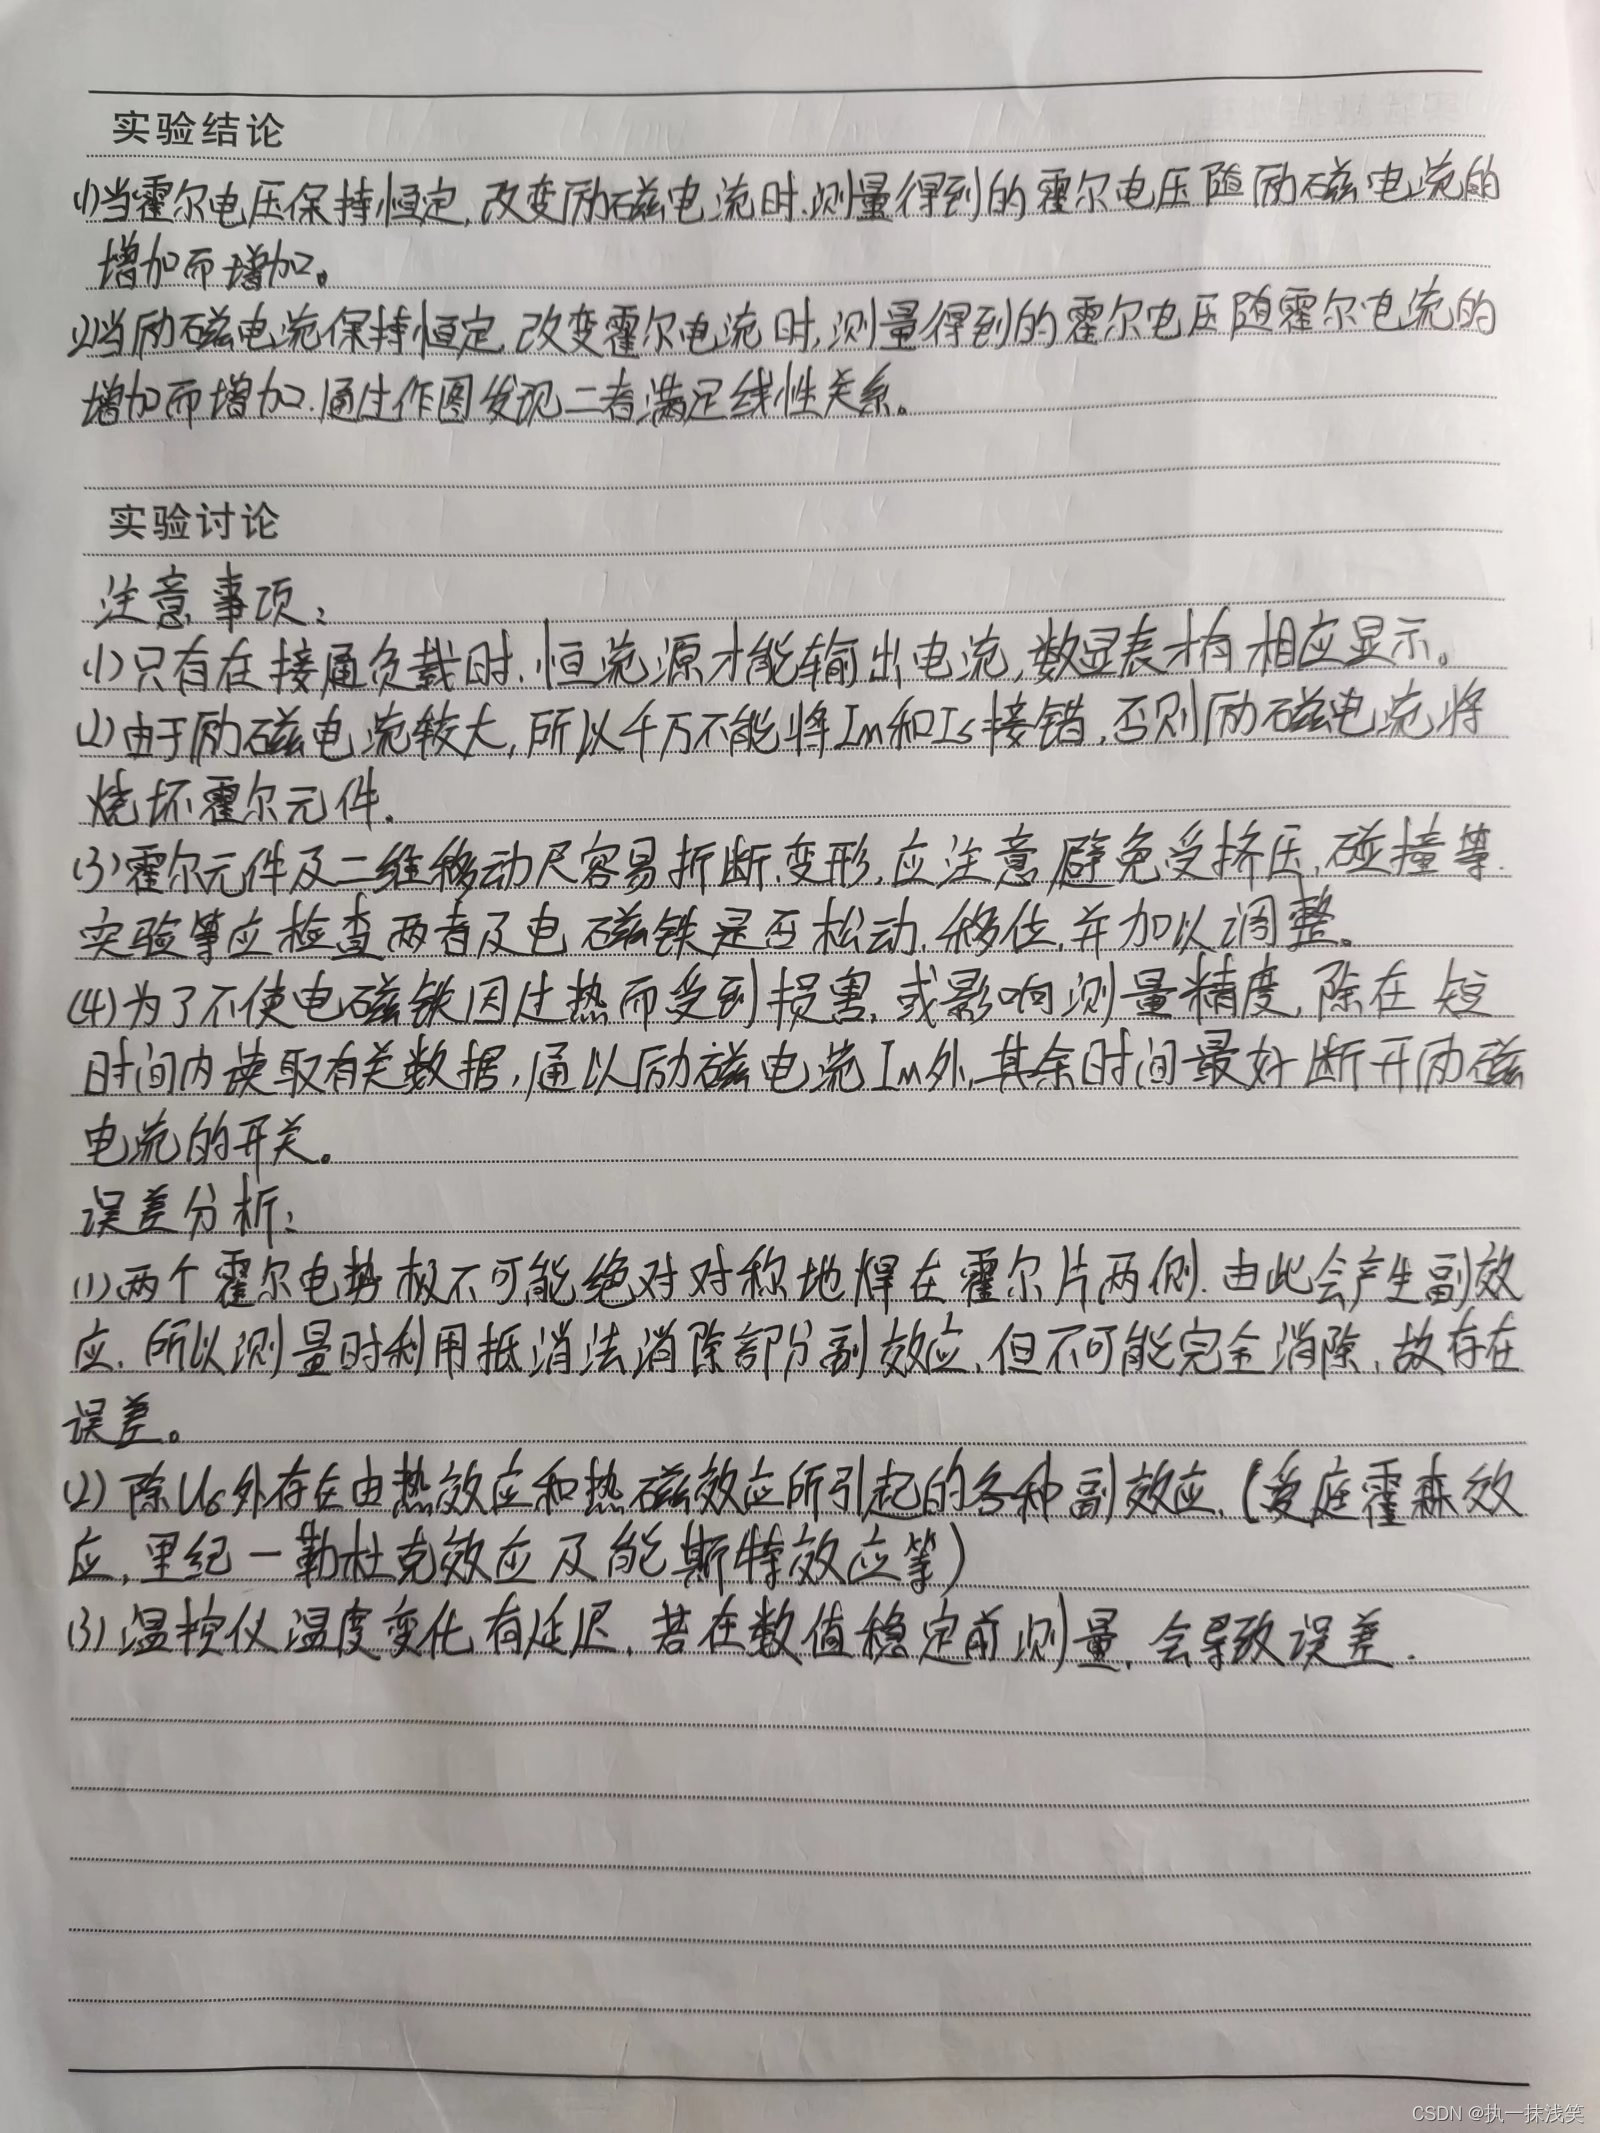 实验结论
(1)当霍尔电压保持恒定,改变励磁电流时,测量得到的霍尔电压随励磁电流的
增加而增加。
(2)当励磁电流保持恒定,改变霍尔电流时,测量得到的霍尔电压随霍尔电流的
增加而增加,通过作图发现二者满足线性关系。
实验讨论
注意事项:
(1)只有在接通负载时,恒流源才能输出电流,数显表才有相应显示。
(2)由于励磁电流较大,所以千万不能将Im和Is接错,否则励磁电流将
烧坏霍尔元件.
(3)霍尔元件及二维移动尺容易折断、变形,应注意避免受挤压,碰撞等.
实验等应检查两者及电磁铁是否松动、移位,并加以调整。
(4)为了不使电磁铁因过热而受到损害,或影响测量精度,除在短
时间内读取有关数据,通以励磁电流Im外,其余时间最好断开励磁
电流的开关。
误差分析:
(1)两个霍尔电势极不可能绝对对称地焊在霍尔片两侧.由此会产生副效
应,所以测量时利用抵消法消除部分副效应,但不可能完全消除,故存在
误差。
(2)除U₀外存在由热效应和热磁效应所引起的各种副效应,(爱庭霍森效
应,里纪一勒杜克效应及能斯特效应等)
(3)温控仪温度变化有延迟,若在数值稳定前测量,会导致误差.
CSDN @执一抹浅笑